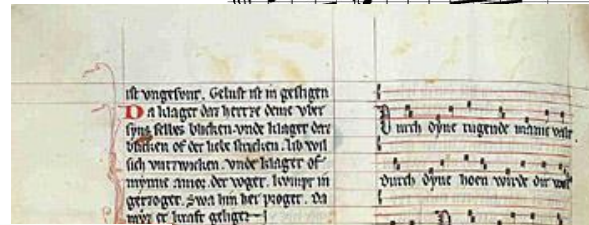 ist vngesunt. Gelust ist in gesligen
Da klaget daz hertze deme vber
syns selbes blicken. vnde klaget daz
blicken of der liebe stricken. Ich wil
sich vurzwicken. vnde klaget of
mynne amor der voget. kvmpt in
getzoget. Swa hin her proget. Da
myt er kraft
Durch dyne tugende manne
Durch dyne hoen wirde dir